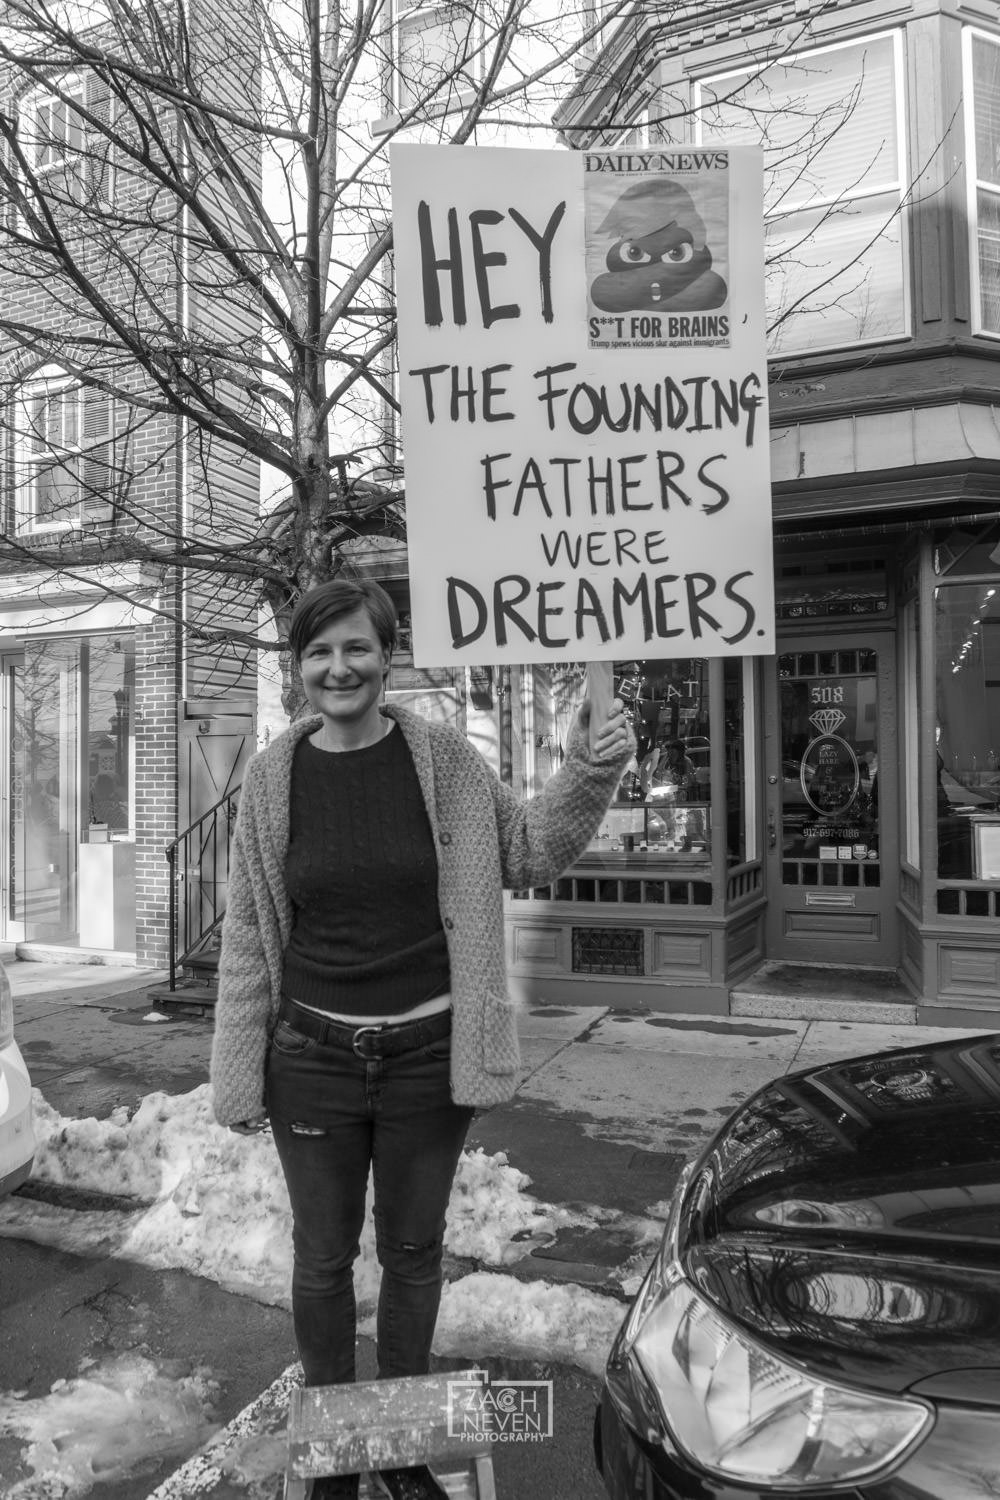 HEY
DAILY NEWS
S**T FOR BRAINS
Trump spews vicious slur against immigrants
,
THE FOUNDING
FATHERS
WERE
DREAMERS.
508
LAZY
HARE
917-697-7086
ZACH
NEVEN
PHOTOGRAPHY